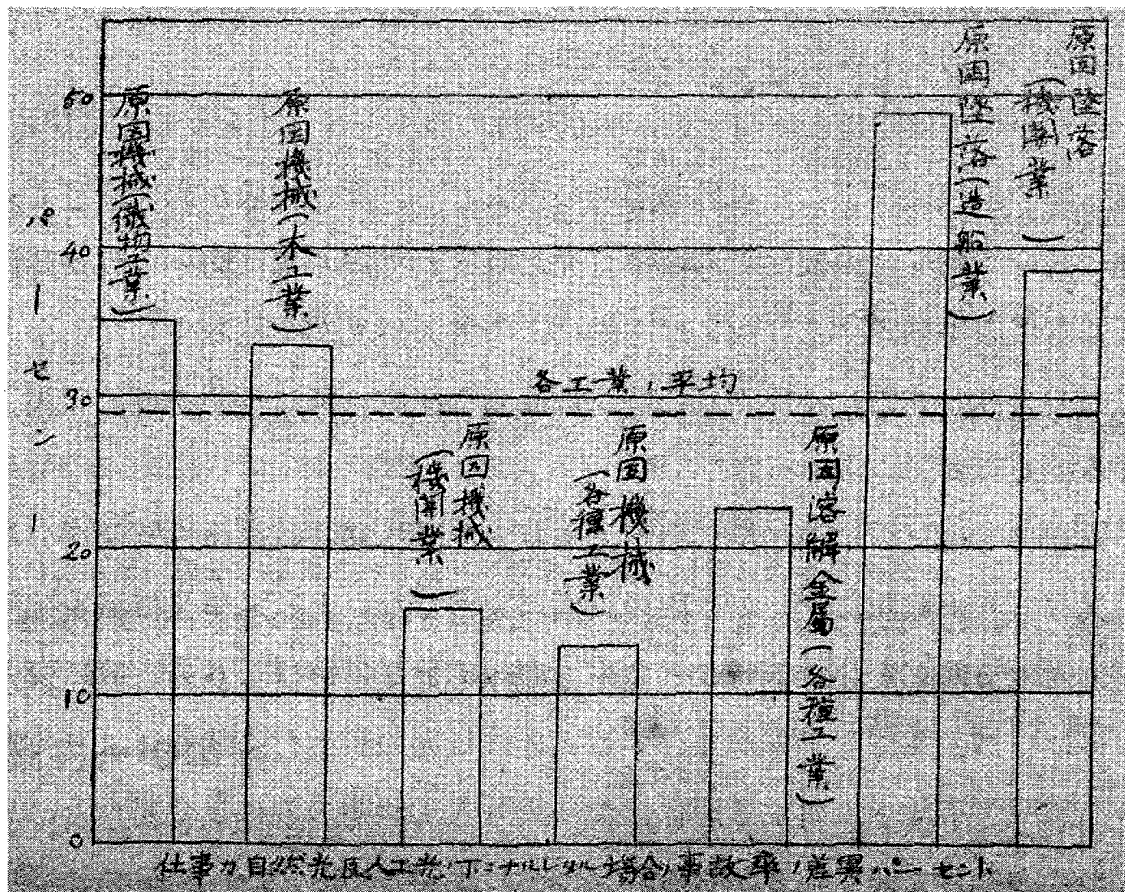 パーセント
50
40
30
20
10
0
原因機械(織物工業)
原因機械(木工業)
原因機械
(機関業)
原因機械
(各種工業)
原因溶解金属(各種工業)
原因墜落(造船業)
原因墜落
(機関業)
各工業ノ平均
仕事ガ自然光及人工光ノ下ニナサレタル場合ノ事故率ノ差異パーセント